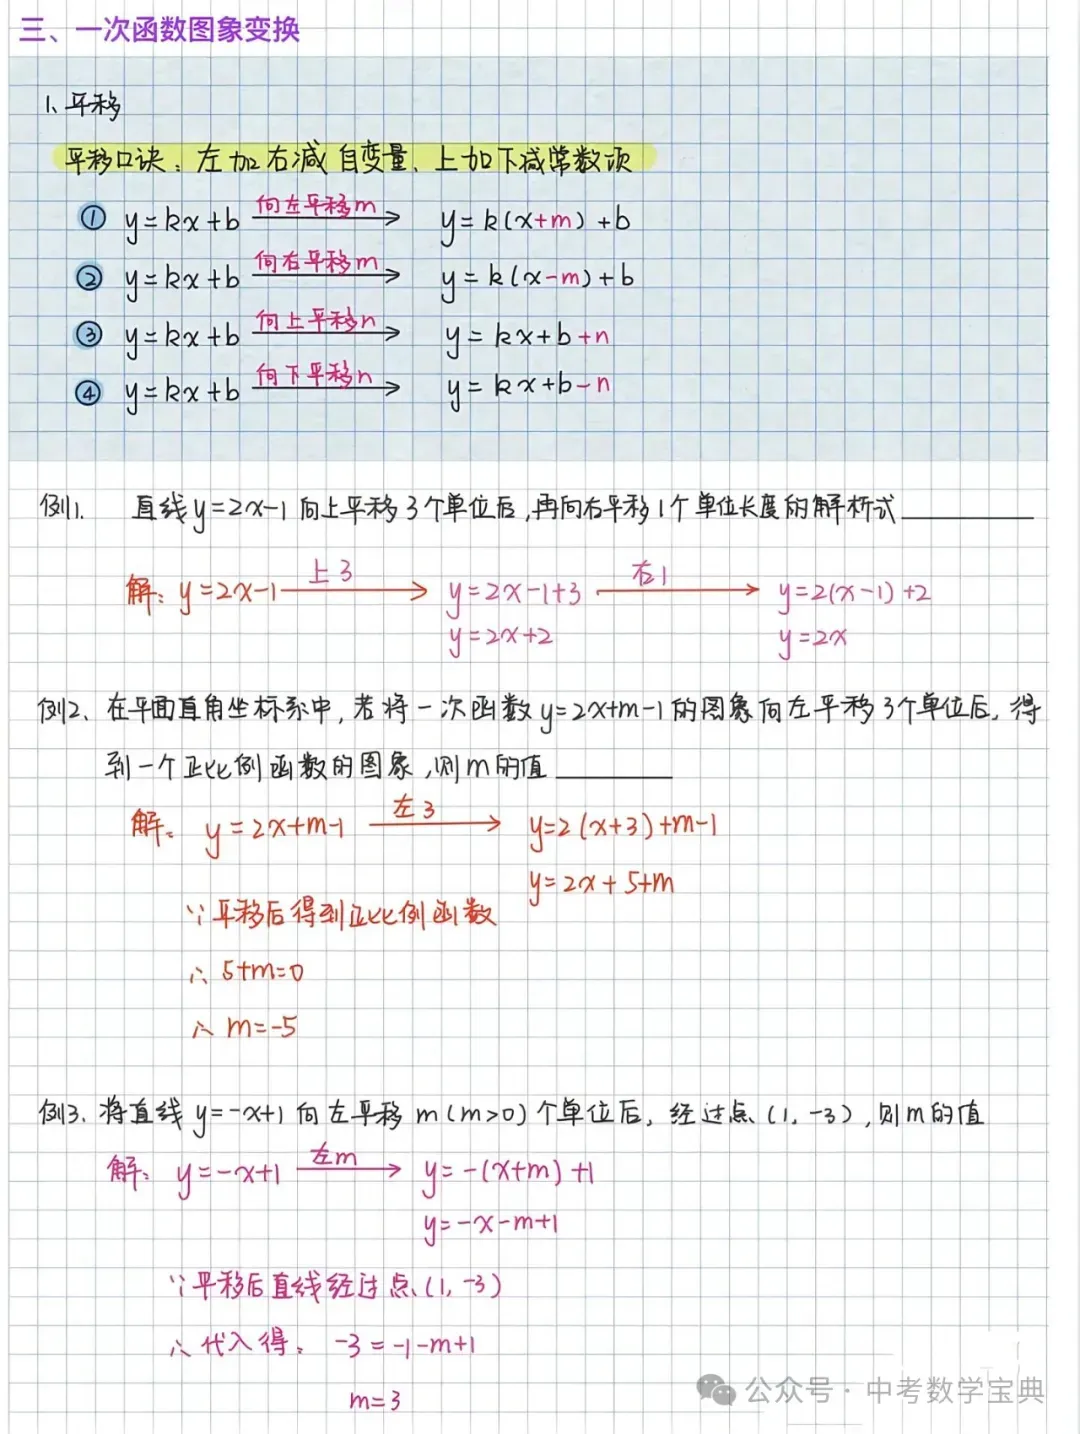 三、一次函数图象变换
1、平移
平移口诀：左加右减自变量、上加下减常数项
① y=kx+b 向左平移m y=k(x+m)+b
② y=kx+b 向右平移m y=k(x-m)+b
③ y=kx+b 向上平移n y=kx+b+n
④ y=kx+b 向下平移n y=kx+b-n
例1. 直线y=2x-1向上平移3个单位后,再向右平移1个单位长度的解析式
解: y=2x-1 上3 y=2x-1+3 右1 y=2(x-1)+2
y=2x+2 y=2x
例2、在平面直角坐标系中,若将一次函数y=2x+m-1的图象向左平移3个单位后,得
到一个正比例函数的图象,则m的值
解: y=2x+m-1 左3 y=2(x+3)+m-1
y=2x+5+m
∵平移后得到正比例函数
∴ 5+m=0
∴ m=-5
例3. 将直线y=-x+1向左平移m(m>0)个单位后,经过点(1,-3),则m的值
解: y=-x+1 左m y=-(x+m)+1
y=-x-m+1
∵平移后直线经过点(1,-3)
∴代入得: -3=-1-m+1
m=3
公众号·中考数学宝典